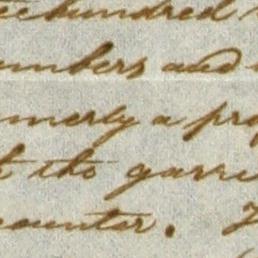 eehundred
umbers and
merly a pro
t the garri
counter.